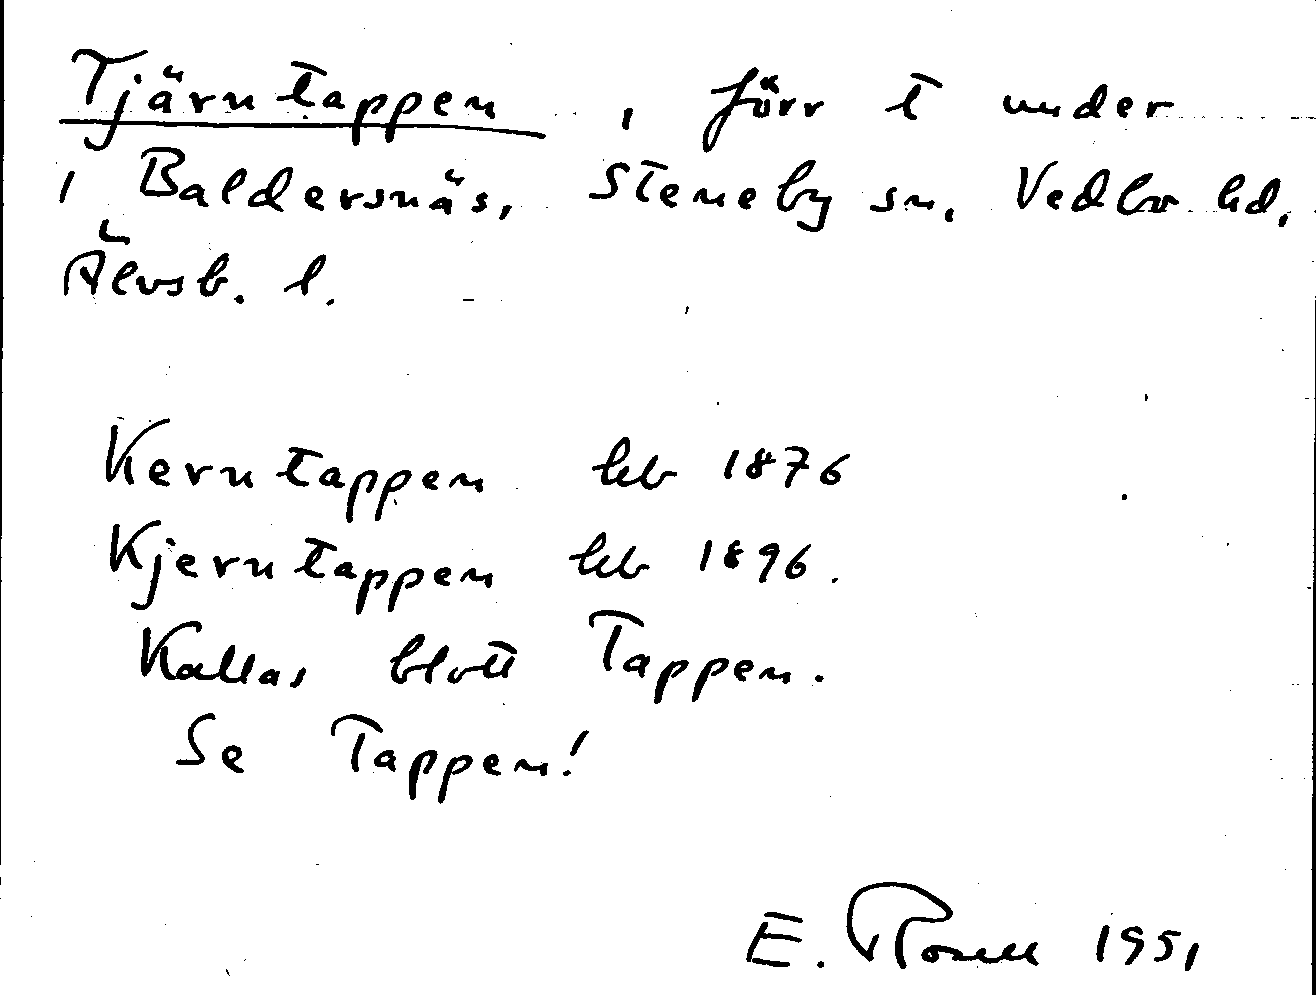 Tjärntappen, förr t under
1 Baldersnäs, Steneby sn, Vedbo hd,
Älvsb. l.
Kerntappen hb 1876
Kjerntappen hb 1896.
Kallas blott Tappen.
Se Tappen!
E. Rosell 1951